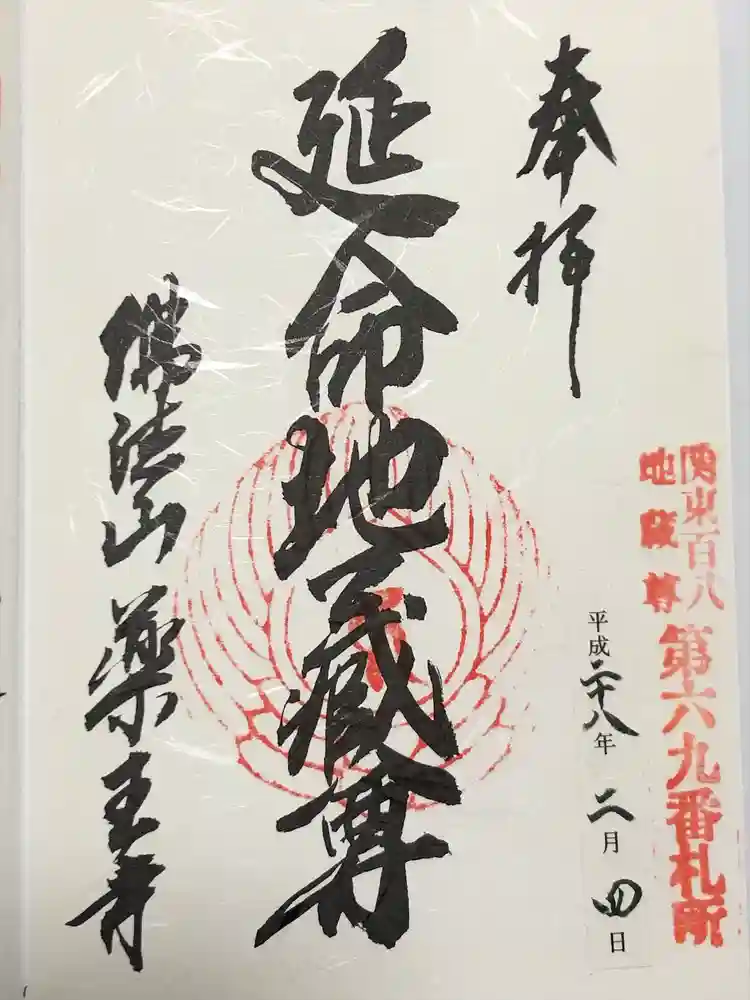 関東百八
地蔵尊
第六九番札所
奉拝
平成二十八年二月四日
延命地蔵尊
佛法山 薬王寺